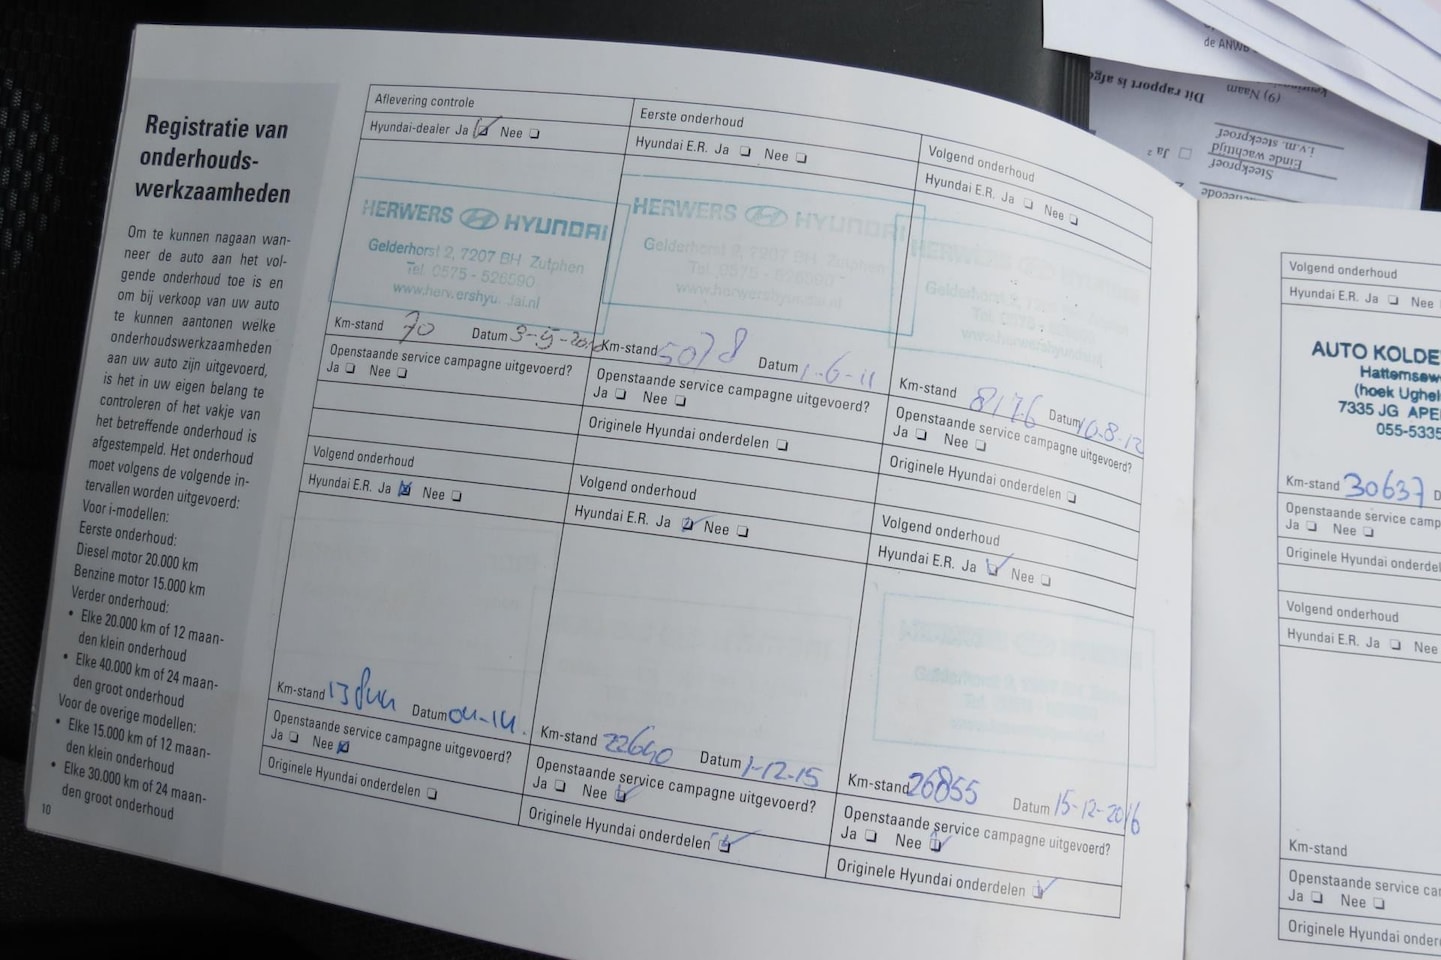 Registratie van
onderhouds-
werkzaamheden
Om te kunnen nagaan wan-
neer de auto aan het vol-
gende onderhoud toe is en
om bij verkoop van uw auto
te kunnen aantonen welke
onderhoudswerkzaamheden
aan uw auto zijn uitgevoerd,
is het in uw eigen belang te
controleren of het vakje van
het betreffende onderhoud is
afgestempeld. Het onderhoud
moet volgens de volgende in-
tervallen worden uitgevoerd:
Voor i-modellen:
Eerste onderhoud:
Diesel motor 20.000 km
Benzine motor 15.000 km
Verder onderhoud:
• Elke 20.000 km of 12 maan-
den klein onderhoud
• Elke 40.000 km of 24 maan-
den groot onderhoud
Voor de overige modellen:
• Elke 15.000 km of 12 maan-
den klein onderhoud
• Elke 30.000 km of 24 maan-
den groot onderhoud
10
Aflevering controle
Hyundai-dealer Ja Nee
HERWERS HYUNDAI
Gelderhorst 2, 7207 BH Zutphen
Tel. 0575 - 526590
Km-stand 70 Datum
Openstaande service campagne uitgevoerd?
Ja Nee
Eerste onderhoud
Hyundai E.R. Ja Nee
HERWERS HYUNDAI
Gelderhorst 2, 7207 BH Zutphen
Tel. 0575 - 526590
www.herwershyundai.nl
Km-stand 5078 Datum 1-6-11
Openstaande service campagne uitgevoerd?
Ja Nee
Originele Hyundai onderdelen
Volgend onderhoud
Hyundai E.R. Ja Nee
HERWERS
Km-stand 8176 Datum 10-8-12
Openstaande service campagne uitgevoerd?
Ja Nee
Originele Hyundai onderdelen
Volgend onderhoud
Hyundai E.R. Ja Nee
Km-stand Datum
Openstaande service campagne uitgevoerd?
Ja Nee
Originele Hyundai onderdelen
Volgend onderhoud
Hyundai E.R. Ja Nee
Km-stand 22640 Datum 1-12-15
Openstaande service campagne uitgevoerd?
Ja Nee
Originele Hyundai onderdelen
Volgend onderhoud
Hyundai E.R. Ja Nee
Km-stand 26855 Datum 15-12-2016
Openstaande service campagne uitgevoerd?
Ja Nee
Originele Hyundai onderdelen
Volgend onderhoud
Hyundai E.R. Ja Nee
AUTO KOLDE
Hattemsew
(hoek Ughel
7335 JG APE
055-5335
Km-stand 30637 D
Openstaande service camp
Ja Nee
Originele Hyundai onderdel
Volgend onderhoud
Hyundai E.R. Ja Nee
Km-stand
Openstaande service ca
Ja Nee
Originele Hyundai onder
de ANWB
Dit rapport is afge
(9) Naam
i.v.m. steekproef
Einde wachttijd
Steekproef
Ja